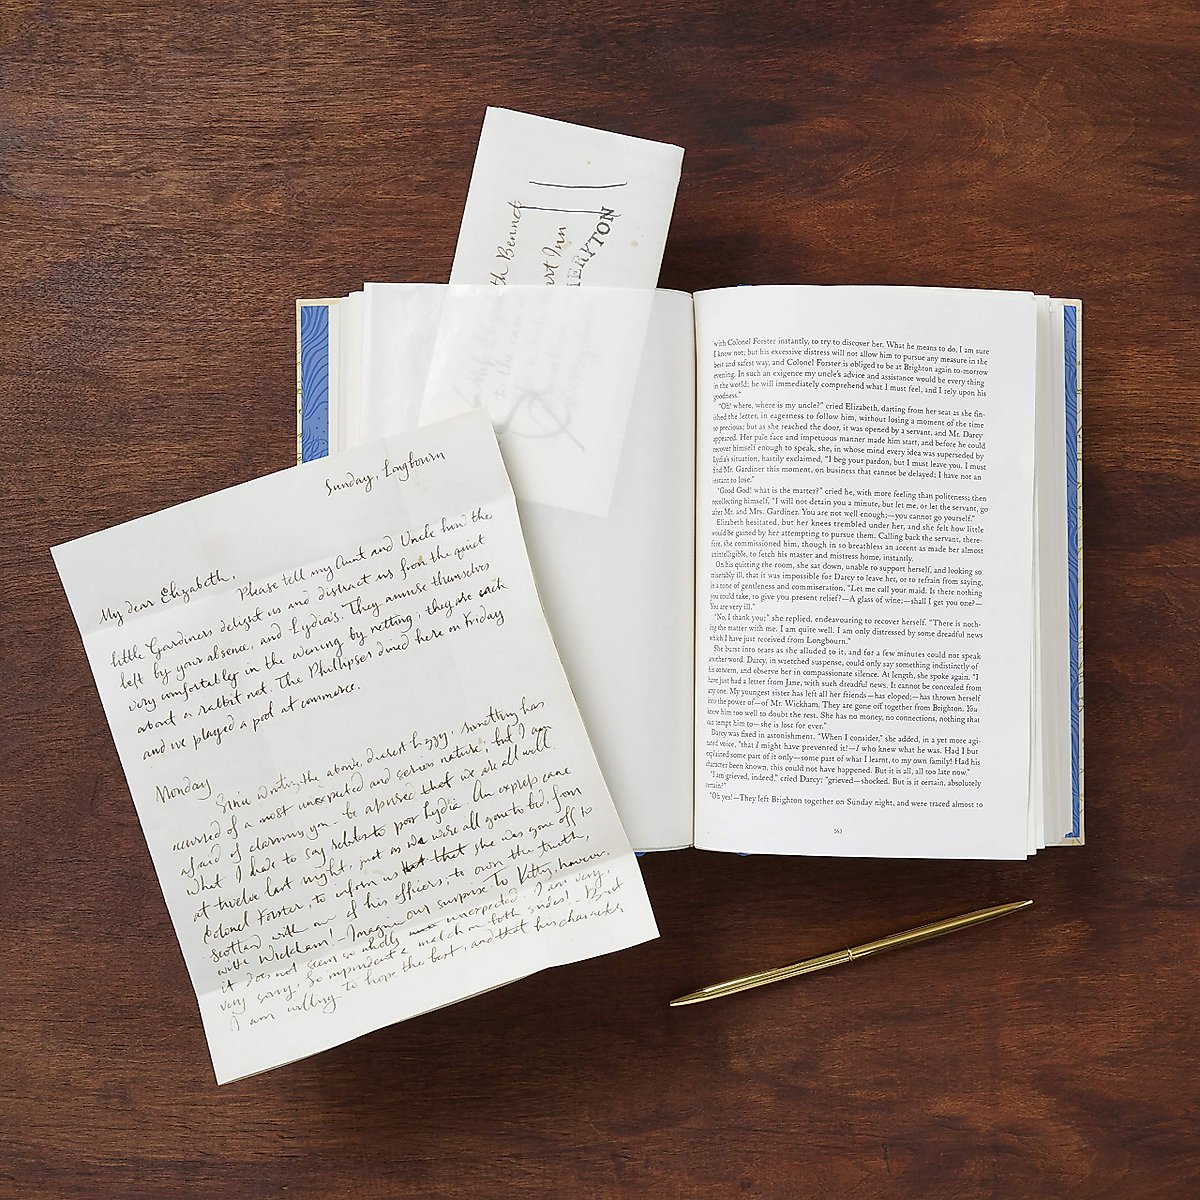 Sunday, Longbourn
My dear Elizabeth,
Please tell my Aunt and Uncle how the
little Gardiners delight us and distract us from the quiet
left by your absence, and Lydia's. They amuse themselves
very comfortably in the evening by netting; they are each
about a rabbit net. The Phillipses dined here on Friday
and we played a pool at commerce.
Monday
Since writing the above, dearest Lizzy, something has
occurred of a most unexpected and serious nature; but I am
afraid of alarming you - be assured that we are all well.
What I have to say relates to poor Lydia. An express came
at twelve last night, just as we were all gone to bed, from
Colonel Forster, to inform us that she was gone off to
Scotland with one of his officers; to own the truth,
with Wickham! - Imagine our surprise. To Kitty, however,
it does not seem so wholly unexpected. I am very,
very sorry. So imprudent a match on both sides! - But
I am willing to hope the best, and that his character
th Bennet
art Inn
MERYTON
with Colonel Forster instantly, to try to discover her. What he means to do, I am sure
I know not; but his excessive distress will not allow him to pursue any measure in the
best and safest way, and Colonel Forster is obliged to be at Brighton again to-morrow
evening. In such an exigence my uncle's advice and assistance would be every thing
in the world; he will immediately comprehend what I must feel, and I rely upon his
goodness."
"Oh! where, where is my uncle?" cried Elizabeth, darting from her seat as she fin-
ished the letter, in eagerness to follow him, without losing a moment of the time
so precious; but as she reached the door, it was opened by a servant, and Mr. Darcy
appeared. Her pale face and impetuous manner made him start, and before he could
recover himself enough to speak, she, in whose mind every idea was superseded by
Lydia's situation, hastily exclaimed, "I beg your pardon, but I must leave you. I must
find Mr. Gardiner this moment, on business that cannot be delayed; I have not an
instant to lose."
"Good God! what is the matter?" cried he, with more feeling than politeness; then
recollecting himself, "I will not detain you a minute, but let me, or let the servant, go
after Mr. and Mrs. Gardiner. You are not well enough;—you cannot go yourself."
Elizabeth hesitated, but her knees trembled under her, and she felt how little
would be gained by her attempting to pursue them. Calling back the servant, there-
fore, she commissioned him, though in so breathless an accent as made her almost
unintelligible, to fetch his master and mistress home, instantly.
On his quitting the room, she sat down, unable to support herself, and looking so
miserably ill, that it was impossible for Darcy to leave her, or to refrain from saying,
in a tone of gentleness and commiseration, "Let me call your maid. Is there nothing
you could take, to give you present relief?—A glass of wine;—shall I get you one?—
You are very ill."
"No, I thank you;" she replied, endeavouring to recover herself. "There is noth-
ing the matter with me. I am quite well. I am only distressed by some dreadful news
which I have just received from Longbourn."
She burst into tears as she alluded to it, and for a few minutes could not speak
another word. Darcy, in wretched suspense, could only say something indistinctly of
his concern, and observe her in compassionate silence. At length, she spoke again. "I
have just had a letter from Jane, with such dreadful news. It cannot be concealed from
any one. My youngest sister has left all her friends—has eloped;—has thrown herself
into the power of—of Mr. Wickham. They are gone off together from Brighton. You
know him too well to doubt the rest. She has no money, no connections, nothing that
can tempt him to—she is lost for ever."
Darcy was fixed in astonishment. "When I consider," she added, in a yet more agi-
tated voice, "that I might have prevented it!—I who knew what he was. Had I but
explained some part of it only—some part of what I learnt, to my own family! Had his
character been known, this could not have happened. But it is all, all too late now."
"I am grieved, indeed," cried Darcy; "grieved—shocked. But is it certain, absolutely
certain?"
"Oh yes!—They left Brighton together on Sunday night, and were traced almost to
163